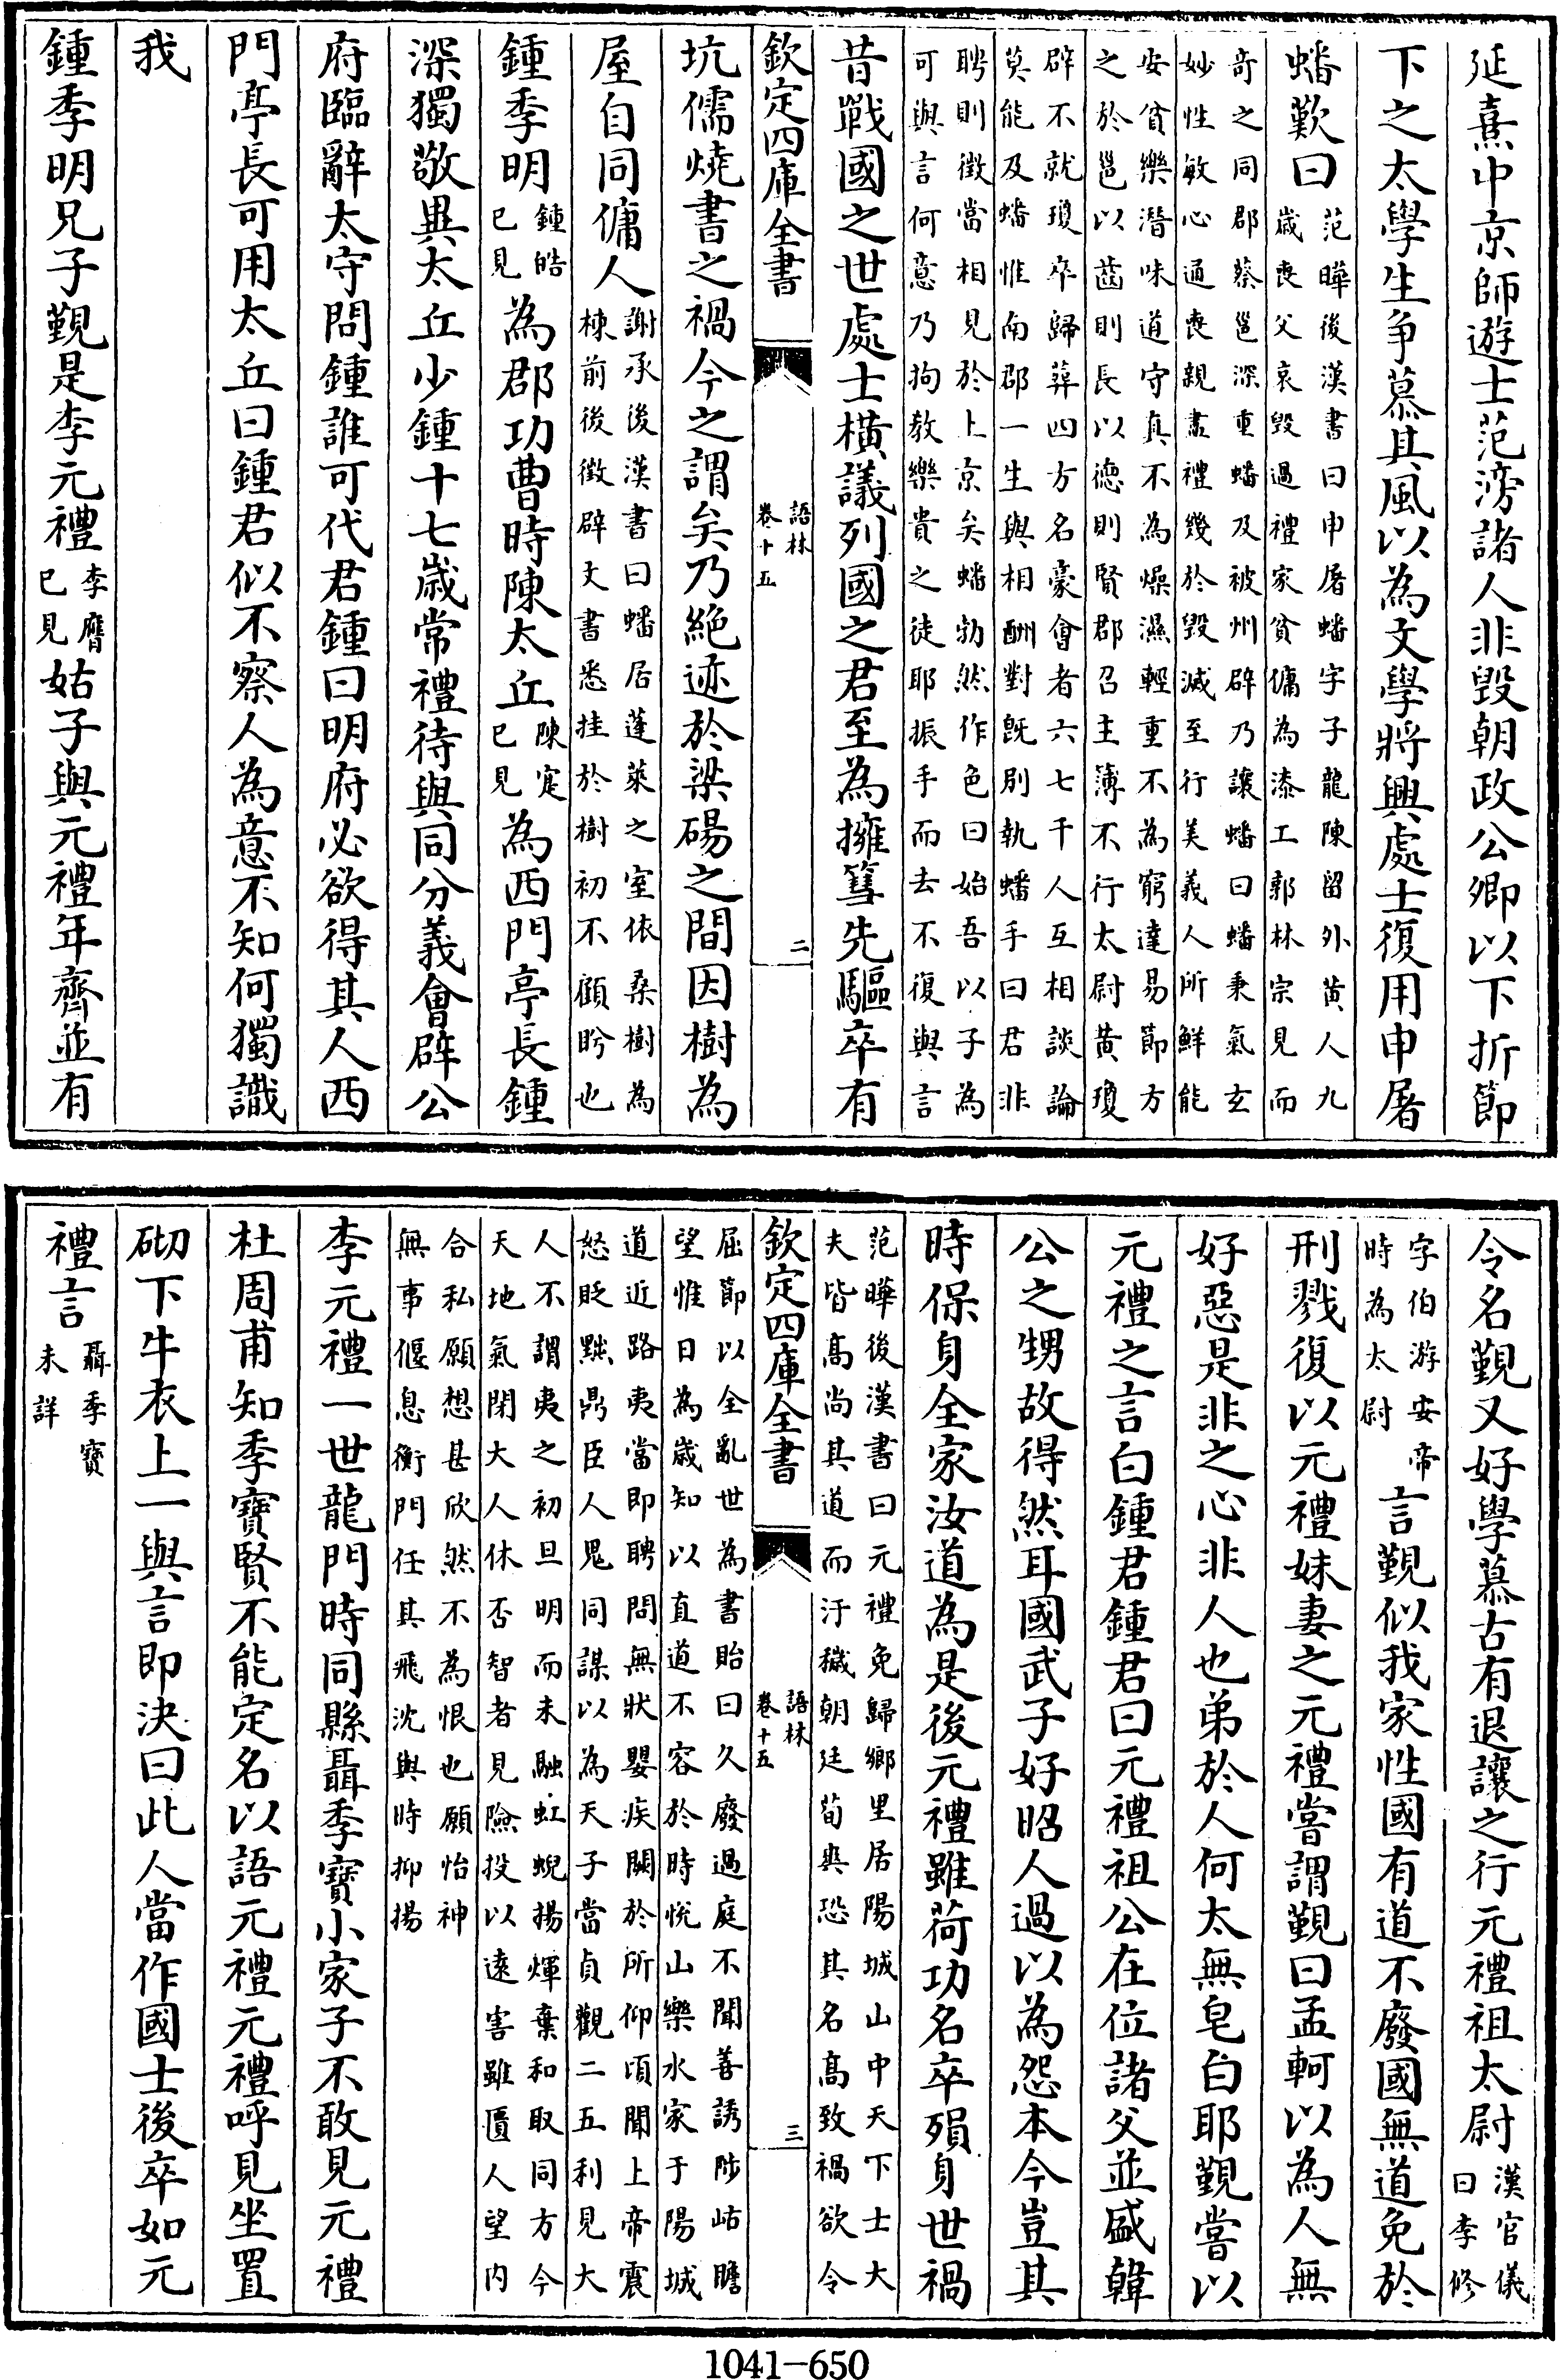 延熹中京師遊士范滂諸人非毀朝政公卿以下折節
下之太學生争慕其風以為文學將興處士復用申屠
蟠歎曰
范曄後漢書曰申屠蟠字子龍陳留外黄人九
歲喪父哀毀過禮家貧傭為漆工郭林宗見而
奇之同郡蔡邕深重蟠及被州辟乃讓蟠曰蟠秉氣玄
妙性敏心通喪親盡禮幾於毀滅至行美義人所鮮能
安貧樂潛味道守真不為燥濕輕重不為窮達易節方
之於邕以齒則長以德則賢郡召主簿不行太尉黄瓊
辟不就瓊卒歸葬四方名豪會者六七千人互相談論
莫能及蟠惟南郡一生與相酬對既別執蟠手曰君非
聘則徵當相見於上京矣蟠勃然作色曰始吾以子為
可與言何意乃拘教樂貴之徒耶振手而去不復與言
昔戰國之世處士橫議列國之君至為擁篲先驅卒有
欽定四庫全書
語林
卷十五
二
坑儒燒書之禍今之謂矣乃絕迹於梁碭之間因樹為
屋自同傭人
謝承後漢書曰蟠居蓬萊之室依桑樹為
棟前後徵辟文書悉挂於樹初不顧盼也
鍾季明
鍾皓
已見
為郡功曹時陳太丘
陳寔
已見
為西門亭長鍾
深獨敬異太丘少鍾十七歲常禮待與同分義會辟公
府臨辭太守問鍾誰可代君鍾曰明府必欲得其人西
門亭長可用太丘曰鍾君似不察人為意不知何獨識
我
鍾季明兄子覲是李元禮
李膺
已見
姑子與元禮年齊並有
令名覲又好學慕古有退讓之行元禮祖太尉
漢官儀
曰李修
字伯游安帝
時為太尉
言覲似我家性國有道不廢國無道免於
刑戮復以元禮妹妻之元禮嘗謂覲曰孟軻以為人無
好惡是非之心非人也弟於人何太無皂白耶覲嘗以
元禮之言白鍾君鍾君曰元禮祖公在位諸父並盛韓
公之甥故得然耳國武子好昭人過以為怨本今豈其
時保身全家汝道為是後元禮雖荷功名卒殞身世禍
范曄後漢書曰元禮免歸鄉里居陽城山中天下士大
夫皆高尚其道而汙穢朝廷荀爽恐其名高致禍欲令
欽定四庫全書
語林
卷十五
三
屈節以全亂世為書貽曰久廢過庭不聞善誘陟岵瞻
望惟日為歲知以直道不容於時悅山樂水家于陽城
道近路夷當即聘問無狀嬰疾闕於所仰頃聞上帝震
怒貶黜鼎臣人鬼同謀以為天子當貞觀二五利見大
人不謂夷之初旦明而未融虹蜺揚煇棄和取同方今
天地氣閉大人休否智者見險投以遠害雖匱人望内
合私願想甚欣然不為恨也願怡神
無事偃息衡門任其飛沈與時抑揚
李元禮一世龍門時同縣聶季寶小家子不敢見元禮
杜周甫知季寶賢不能定名以語元禮元禮呼見坐置
砌下牛衣上一與言即決曰此人當作國士後卒如元
禮言
聶季寶
未詳
1041-650